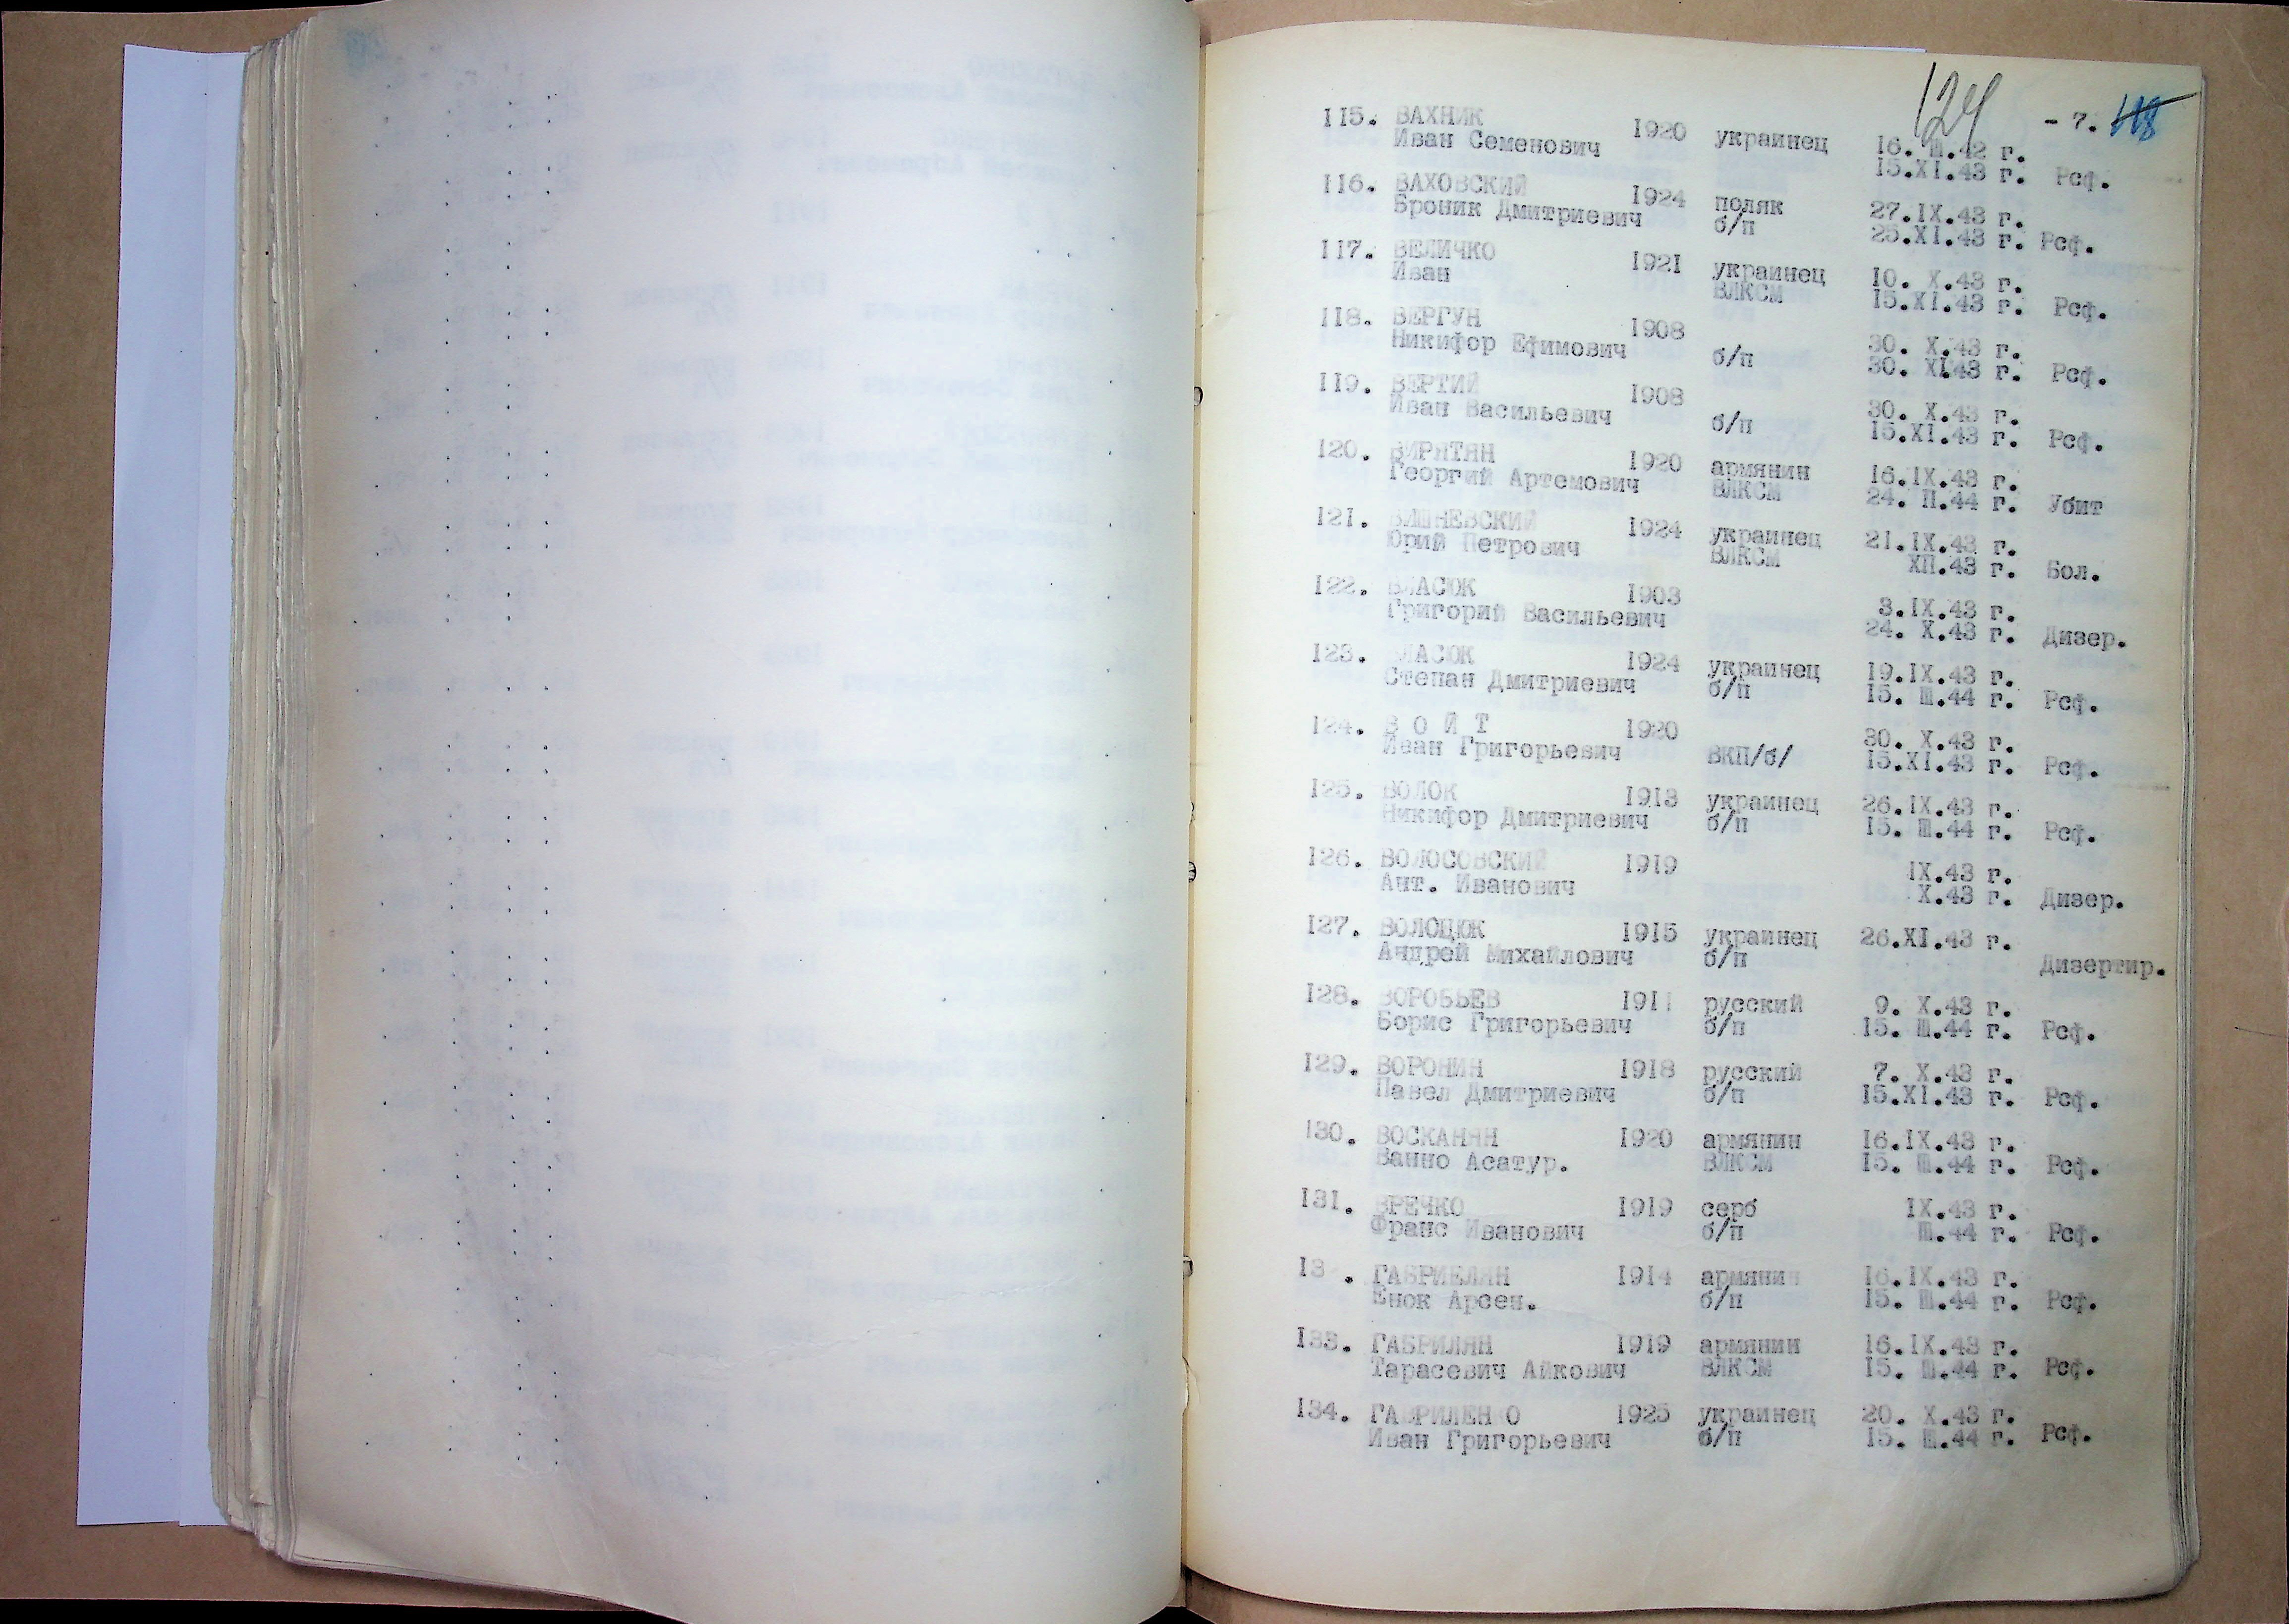 124
- 7. 118
115. ВАХНИК 1920 украинец 16. Ш.42 г.
Иван Семенович 15.XI.43 г. Рсф.
116. ВАХОВСКИЙ 1924 поляк 27.IX.43 г.
Броник Дмитриевич б/п 25.XI.43 г. Рсф.
117. ВЕЛИЧКО 1921 украинец 10. X.43 г.
Иван ВЛКСМ 15.XI.43 г. Рсф.
118. ВЕРГУН 1908 30. X.43 г.
Никифор Ефимович б/п 30. XI.43 г. Рсф.
119. ВЕРТИЙ 1908 30. X.43 г.
Иван Васильевич б/п 15.XI.43 г. Рсф.
120. ВИРЯТЯН 1920 армянин 16.IX.43 г.
Георгий Артемович ВЛКСМ 24. П.44 г. Убит
121. ВИШНЕВСКИЙ 1924 украинец 21.IX.43 г.
Юрий Петрович ВЛКСМ ХП.43 г. Бол.
122. ВЛАСЮК 1903 3.IX.43 г.
Григорий Васильевич 24. X.43 г. Дизер.
123. ВЛАСЮК 1924 украинец 19.IX.43 г.
Степан Дмитриевич б/п 15. Ш.44 г. Рсф.
124. В О Й Т 1920 30. X.43 г.
Иван Григорьевич ВКП/б/ 15.XI.43 г. Рсф.
125. ВОЛОК 1913 украинец 26.IX.43 г.
Никифор Дмитриевич б/п 15. Ш.44 г. Рсф.
126. ВОЛОСОВСКИЙ 1919 IX.43 г.
Ант. Иванович X.43 г. Дизер.
127. ВОЛОЦЮК 1915 украинец 26.XI.43 г.
Андрей Михайлович б/п Дизертир.
128. ВОРОБЬЕВ 1911 русский 9. X.43 г.
Борис Григорьевич б/п 15. Ш.44 г. Рсф.
129. ВОРОНИН 1918 русский 7. X.43 г.
Павел Дмитриевич б/п 15.XI.43 г. Рсф.
130. ВОСКАНЯН 1920 армянин 16.IX.43 г.
Ванно Асатур. ВЛКСМ 15. Ш.44 г. Рсф.
131. ВРЕЧКО 1919 серб IX.43 г.
Франс Иванович б/п Ш.44 г. Рсф.
13 . ГАБРИЕЛЯН 1914 армянин 16.IX.43 г.
Енок Арсен. б/п 15. Ш.44 г. Рсф.
133. ГАБРИЛЯН 1919 армянин 16.IX.43 г.
Тарасевич Айкович ВЛКСМ 15. Ш.44 г. Рсф.
134. ГАВРИЛЕН О 1925 украинец 20. X.43 г.
Иван Григорьевич б/п 15. Ш.44 г. Рсф.